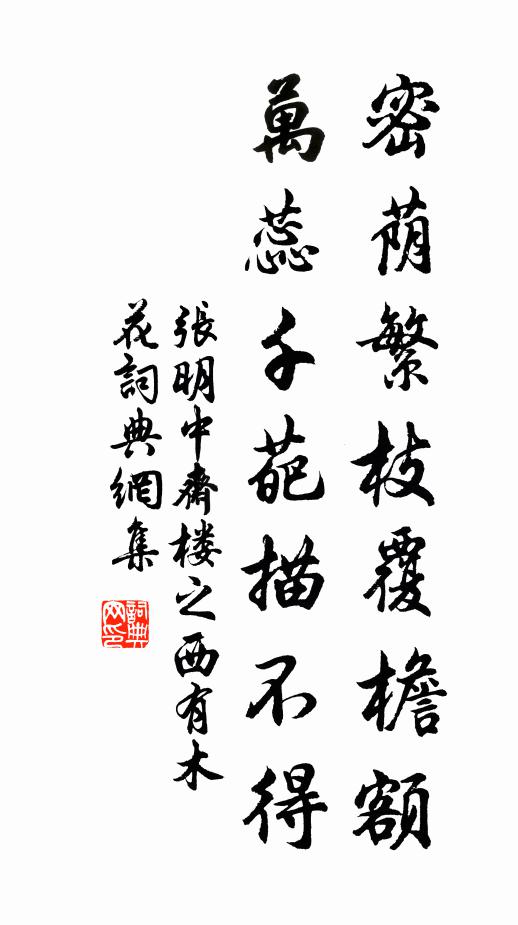 密荫繁枝覆檐額
萬蕊千葩描不得
張明中齋楼之西有木
花詞典網集
詞典网印